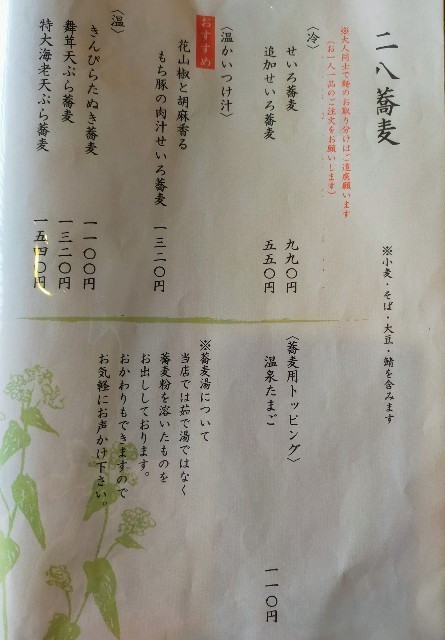 二八蕎麦
※小麦・そば・大豆・鯖を含みます
※大人同士で麺のお取り分けはご遠慮願います
（お一人一品のご注文をお願いします）
〈冷〉
せいろ蕎麦 九九〇円
追加せいろ蕎麦 五五〇円
〈温かいつけ汁〉
おすすめ
花山椒と胡麻香る
もち豚の肉汁せいろ蕎麦 一三二〇円
〈温〉
きんぴらたぬき蕎麦 一一〇〇円
舞茸天ぷら蕎麦 一三二〇円
特大海老天ぷら蕎麦 一五四〇円
〈蕎麦用トッピング〉
温泉たまご 一一〇円
※蕎麦湯について
当店では茹で湯ではなく
蕎麦粉を溶いたものを
お出ししております。
おかわりもできますので
お気軽にお声かけ下さい。